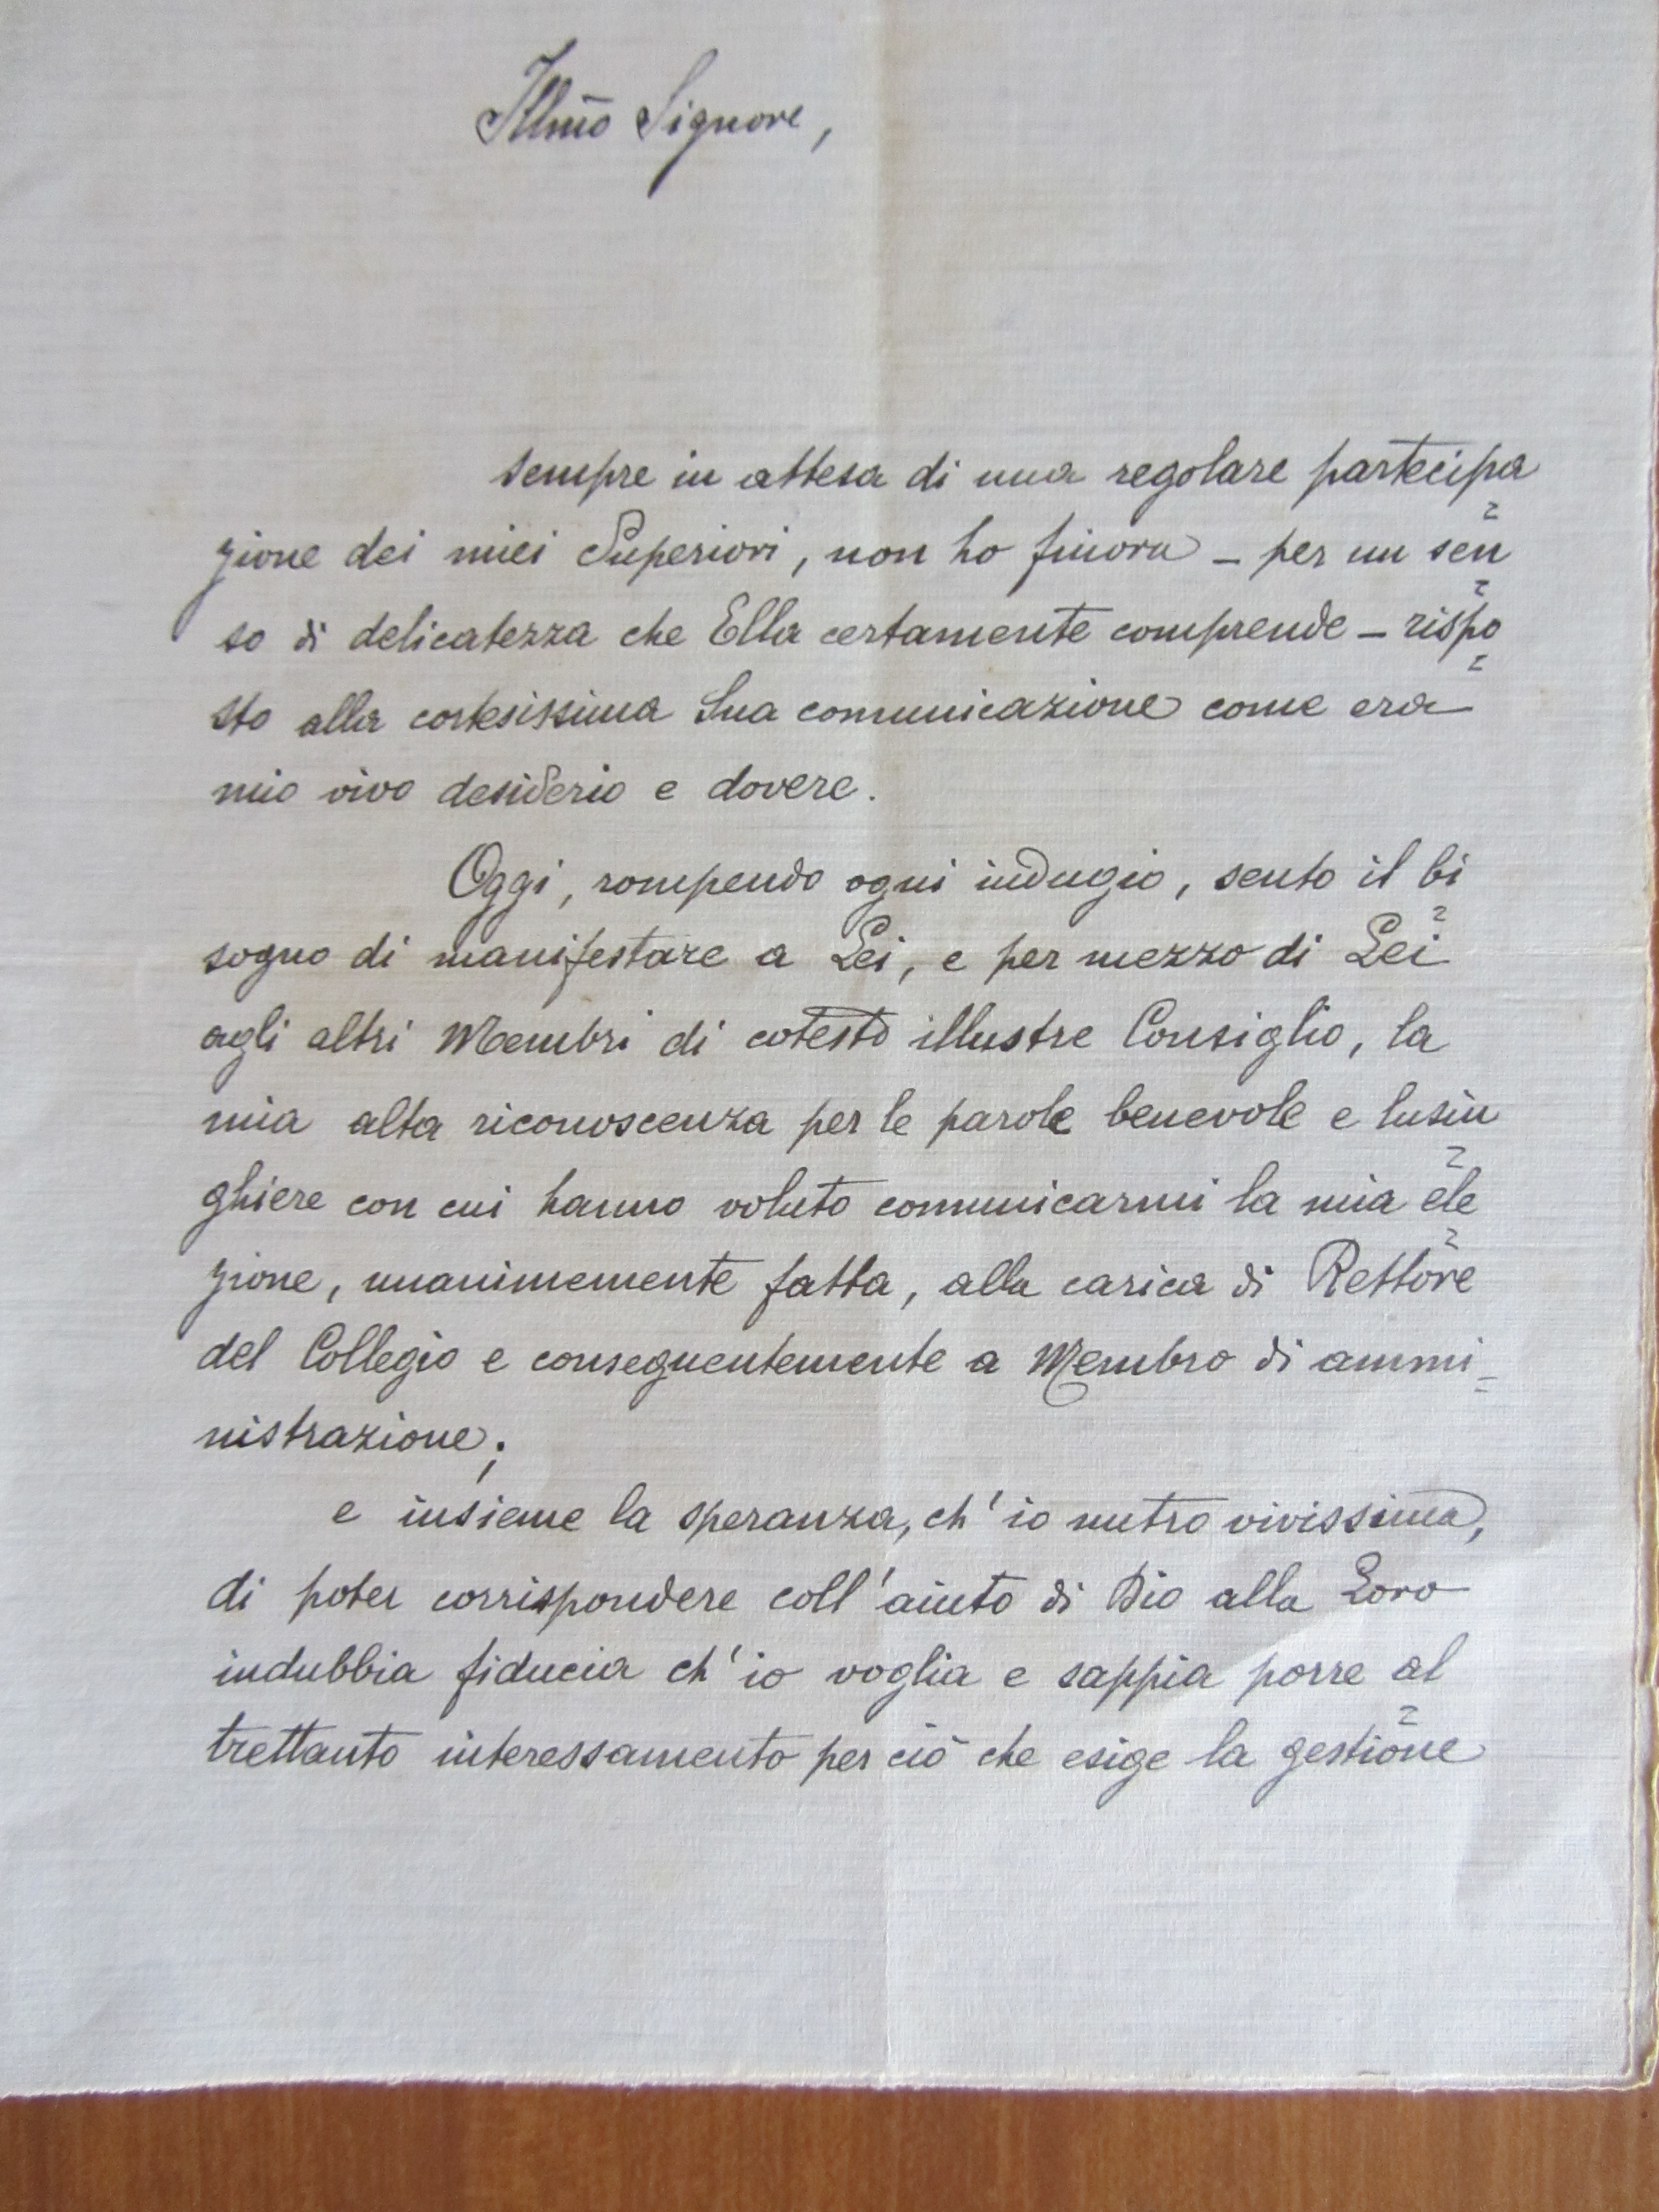 Illm̃o Signore,
sempre in attesa di una regolare partecipa=
zione dei miei Superiori, non ho finora – per un sen=
so di delicatezza che Ella certamente comprende – rispo=
sto alla cortesissima Sua comunicazione come era
mio vivo desiderio e dovere.
Oggi, rompendo ogni indugio, sento il bi=
sogno di manifestare a Lei, e per mezzo di Lei
agli altri Membri di cotesto illustre Consiglio, la
mia alta riconoscenza per le parole benevole e lusin=
ghiere con cui hanno voluto comunicarmi la mia ele=
zione, unanimemente fatta, alla carica di Rettore
del Collegio e conseguentemente a Membro di ammi=
nistrazione;
e insieme la speranza, ch'io nutro vivissima,
di poter corrispondere coll'aiuto di Dio alla Loro
indubbia fiducia ch'io voglia e sappia porre al=
trettanto interessamento per ciò che esige la gestione